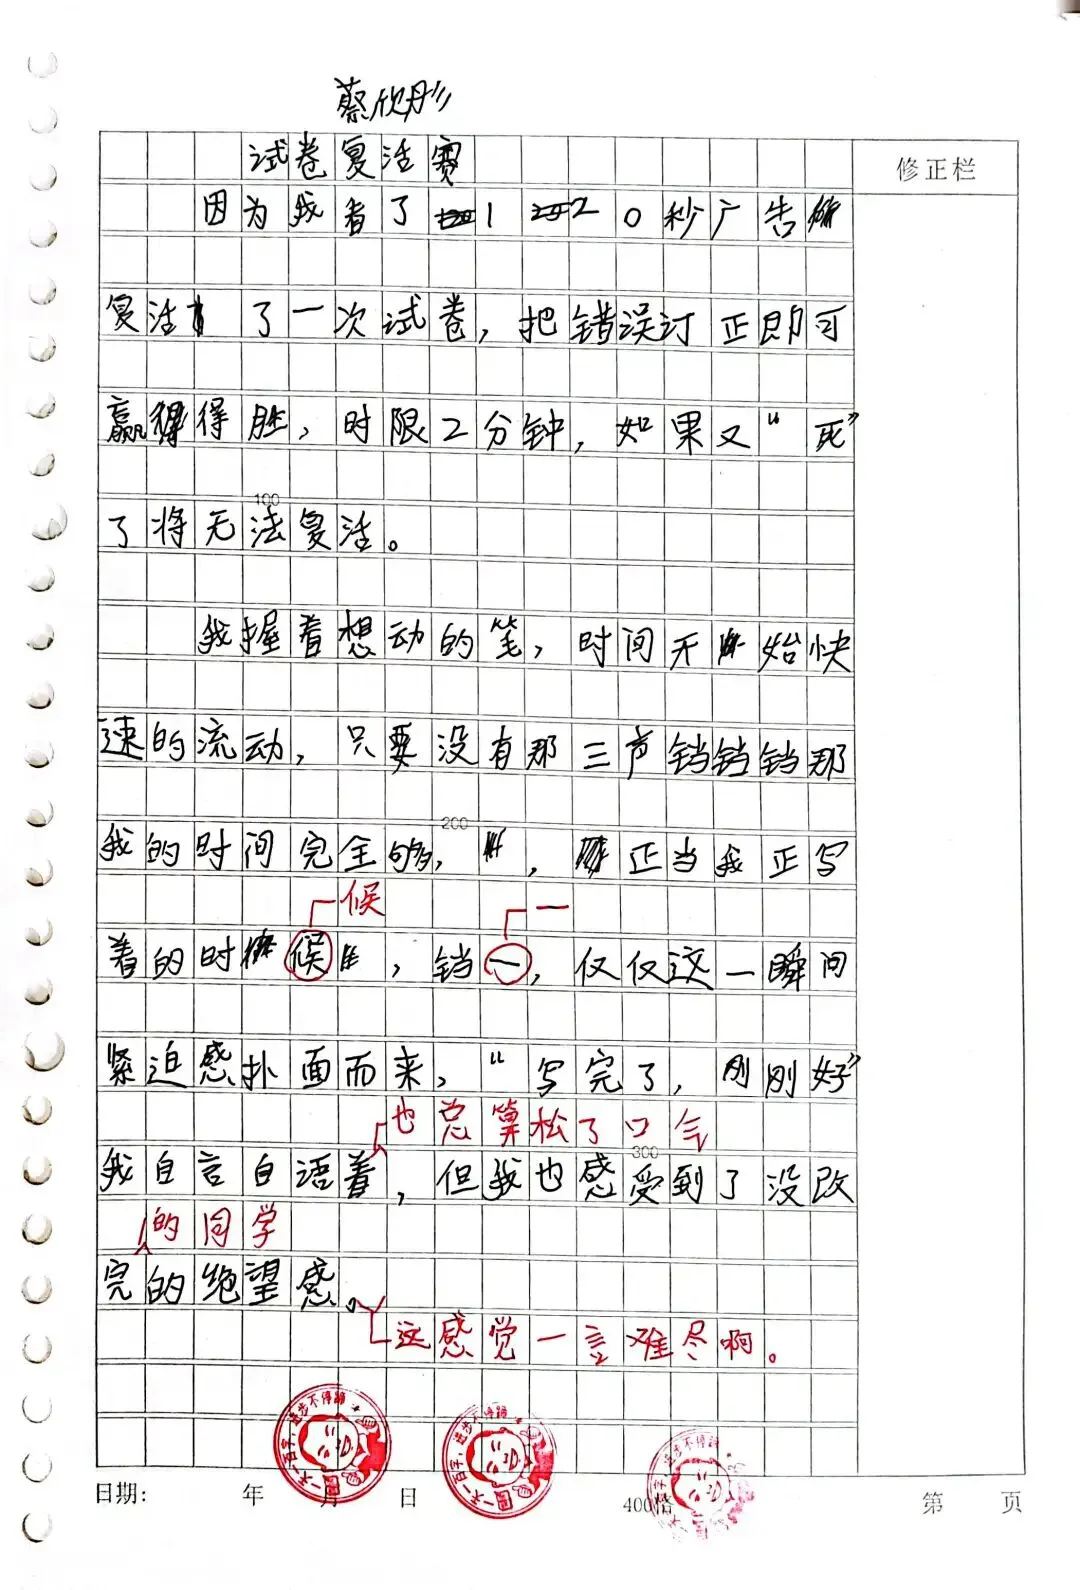 蔡欣彤
试卷复活赛
修正栏
因为我看了120秒广告
复活了一次试卷，把错误订正即可
赢得胜，时限2分钟，如果又“死”
100
了将无法复活。
我握着想动的笔，时间开始快
速的流动，只要没有那三声铛铛铛那
200
我的时间完全够，，正当我正写
候 一
着的时候，铛一，仅仅这一瞬间
紧迫感扑面而来，“写完了，刚刚好”
也总算松了口气
300
我自言自语着，但我也感受到了没改
的同学
完的绝望感。
这感觉一言难尽啊。
一天一百字，进步不停蹄
一天一百字，进步不停蹄
日期： 年 月 日 400格 第 页